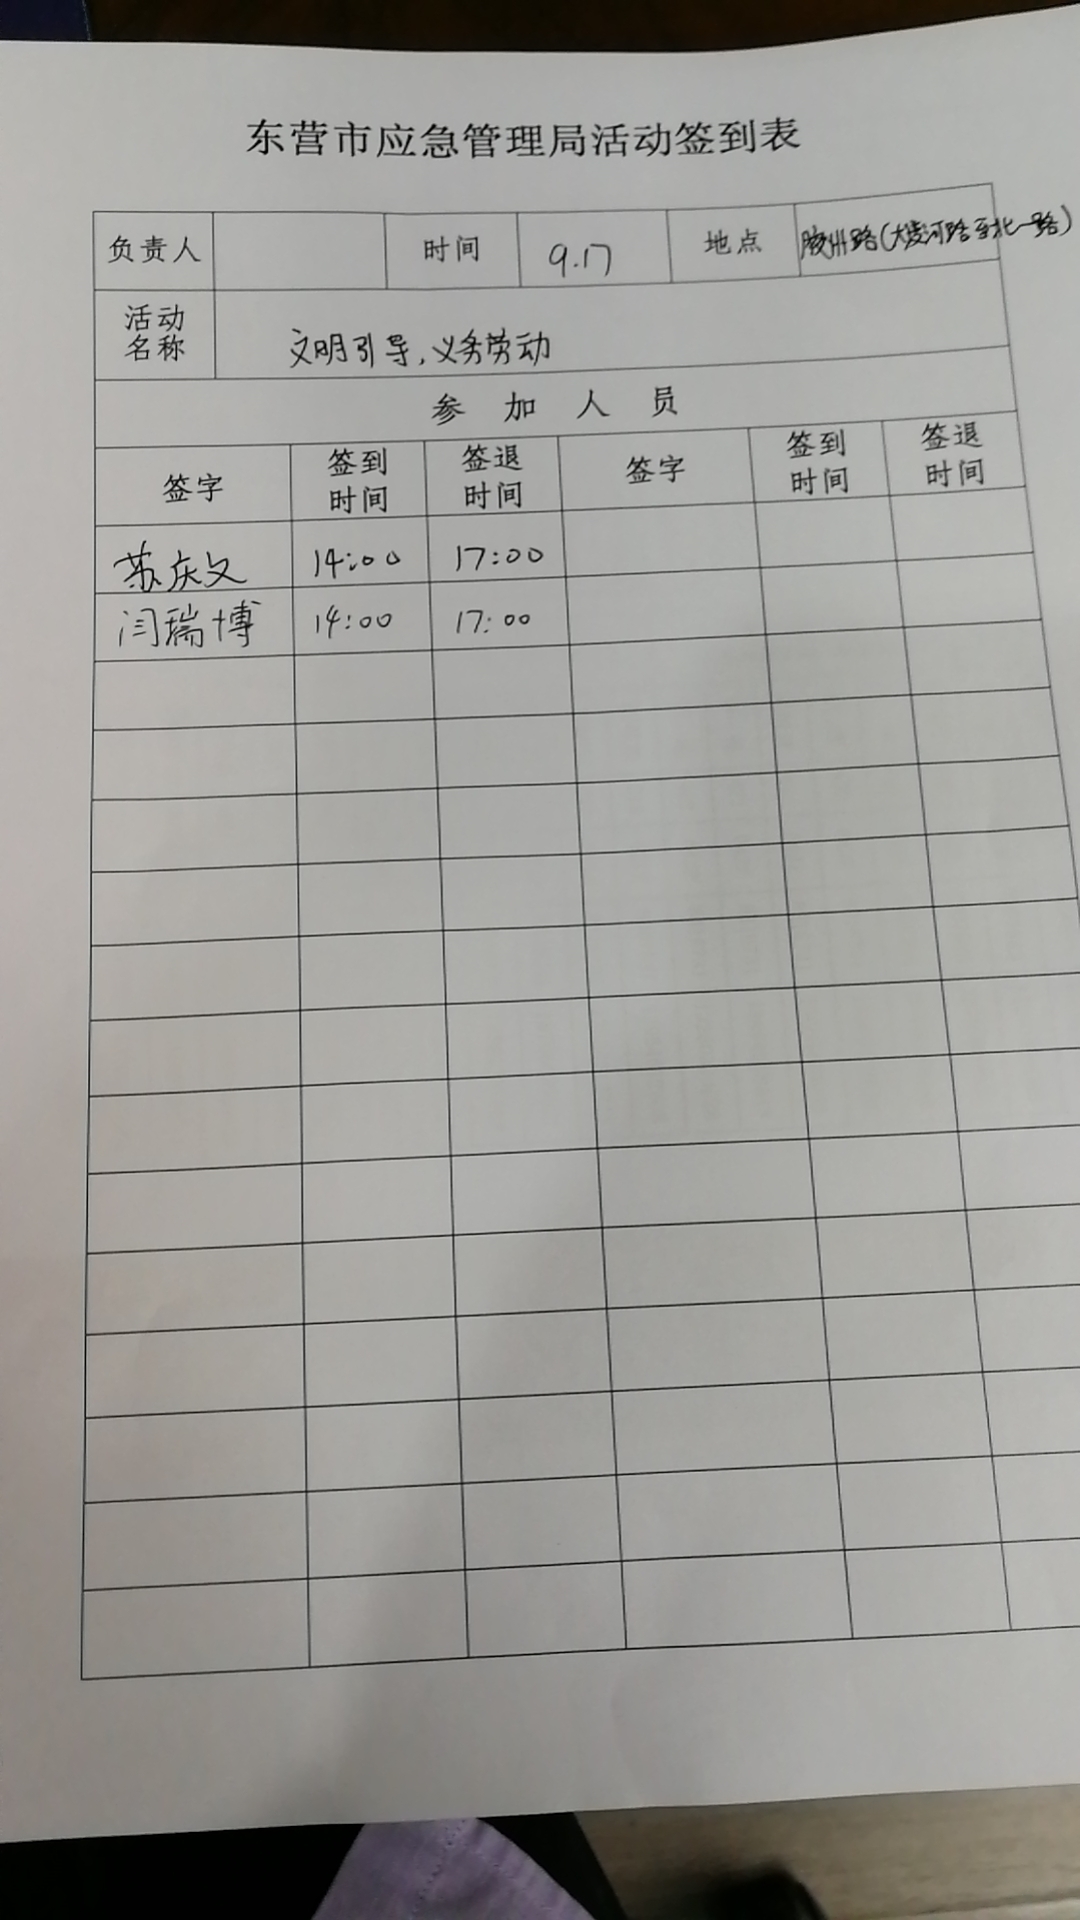 东营市应急管理局活动签到表
负责人 时间 9.17 地点 胶州路(大渡河路至北一路)
活动名称 文明引导,义务劳动
参加人员
签字 签到时间 签退时间 签字 签到时间 签退时间
苏庆文 14:00 17:00
闫瑞博 14:00 17:00